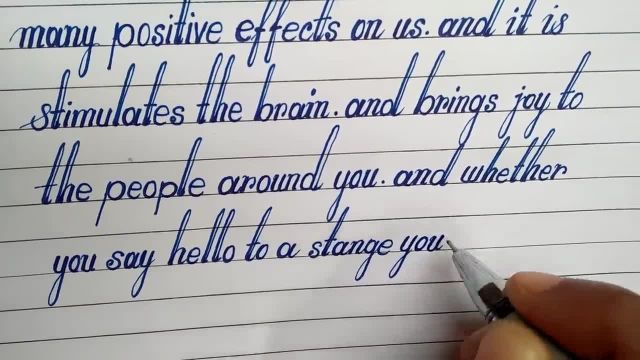 many positive effects on us. and it is
stimulates the brain. and brings joy to
the people around you. and whether
you say hello to a stange you